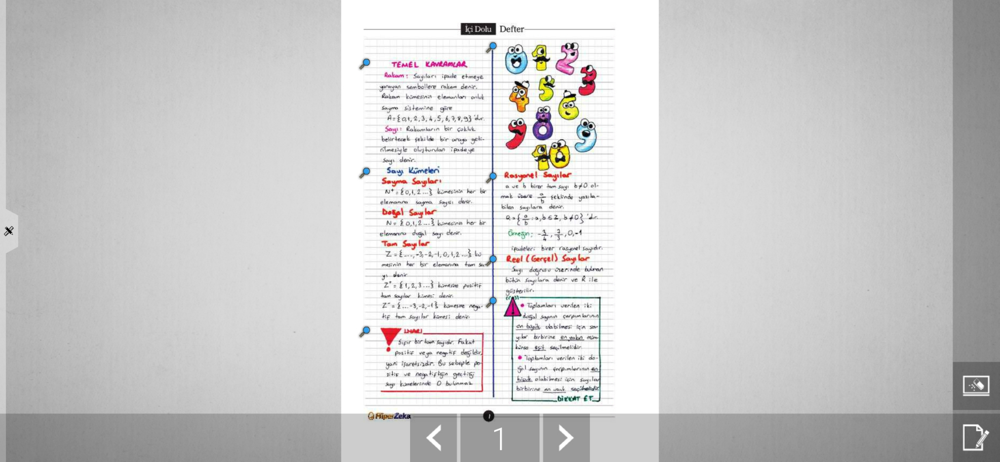 İçi Dolu Defter
TEMEL KAVRAMLAR
Rakam: Sayıları ifade etmeye
yarayan sembollere rakam denir.
Rakam kümesinin elemanları onluk
sayma sistemine göre
A = {0,1,2,3,4,5,6,7,8,9} 'dur.
Sayı: Rakamların bir çokluk
belirtecek şekilde bir araya geti-
rilmesiyle oluşturulan ifadeye
sayı denir.
Sayı Kümeleri
Sayma Sayıları
N⁺ = {0,1,2...} kümesinin her bir
elemanına sayma sayısı denir.
Doğal Sayılar
N = {0,1,2...} kümesinin her bir
elemanına doğal sayı denir.
Tam Sayılar
Z = {...,-3,-2,-1,0,1,2...} kü-
mesinin her bir elemanına tam sa-
yı denir.
Z⁺ = {1,2,3...} kümesine pozitif
tam sayılar kümesi denir.
Z⁻ = {...-3,-2,-1} kümesine nega-
tif tam sayılar kümesi denir.
UYARI
Sıfır bir tam sayıdır. Fakat
pozitif veya negatif değildir,
yani işaretsizdir. Bu sebeple po-
zitif ve negatifliğin geçtiği
sayı kümelerinde 0 bulunmaz.
0 1 2
3
4 5
6
7 8 9
10
Rasyonel Sayılar
a ve b birer tam sayı b≠0 ol-
mak üzere a/b şeklinde yazıla-
bilen sayılara denir.
Q = {a/b : a,b ∈ Z, b≠0} 'dır.
Örneğin:
ifadeleri birer rasyonel sayıdır.
Reel (Gerçel) Sayılar
Sayı doğrusu üzerinde bulunan
bütün sayılara denir ve R ile
gösterilir.
• Toplamları verilen iki
doğal sayının çarpımlarının
en büyük olabilmesi için sa-
yılar birbirine en yakın
seçilmelidir.
• Toplamları verilen iki do-
ğal sayının çarpımlarının en
küçük olabilmesi için sayılar
birbirine en uzak seçilmelidir.
DİKKAT ET
HiperZeka
1
1